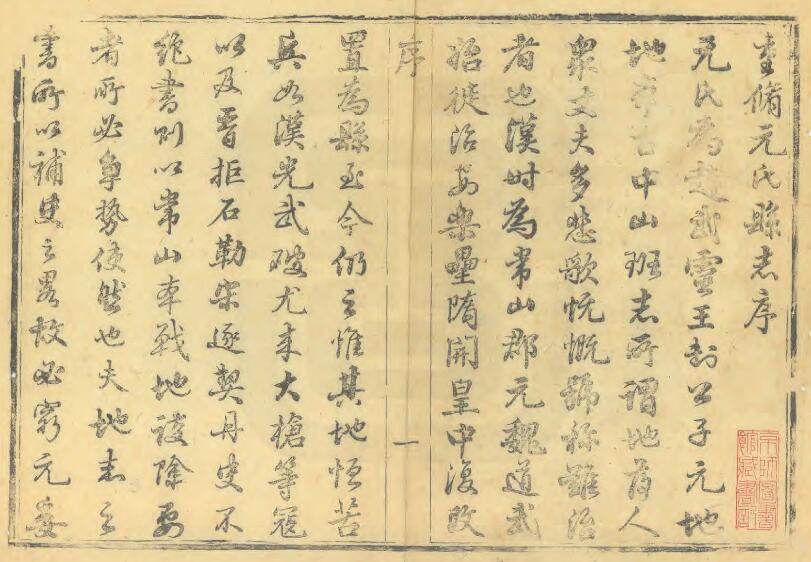 重脩元氏縣志序
元氏為趙武靈王封公子元地
地古中山班志所謂地薄人
衆丈夫多悲歌忼慨號稱難治
者也漢時為常山郡元魏道武
始徙治安樂壘隋開皇中復改
序
一
置為縣至今仍之惟其地恒苦
兵如漢光武破尤来大槍等冦
以及晋拒石勒宋逐契丹史不
絶書則以常山戰地設要
者所必争勢使然也夫地志之
書所以補史之畧故必窮元委
京師圖書
館藏書印